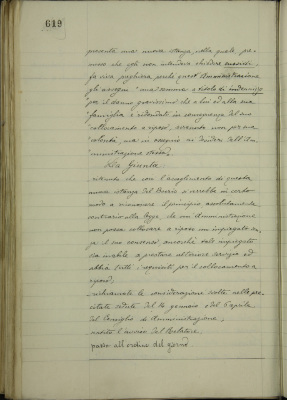 619
presentò una nuova istanza, nella quale, pre-
messo che egli non intendeva chiedere
preghiera, perchè quest'Amministrazione
gli assegni una somma a titolo di indennizzo
per il danno gravissimo che a lui ed alla sua
famiglia è ridondato in conseguenza del suo
collocamento a riposo, avvenuto non per sua
volontà, ma in ossequio ai desideri dell'Am-
ministrazione stessa;
La Giunta
ritenuto che con l'accoglimento di questa
nuova istanza del si verrebbe in certo
modo a riconoscere il principio, assolutamente
contrario alla legge, che un'Amministrazione
non possa collocare a riposo un impiegato sen-
za il suo consenso, ancorchè tale impiegato
sia inabile a prestare ulteriore servizio ed
abbia tutti i requisiti per il collocamento a
riposo;
richiamate le considerazioni svolte nelle pre-
citate sedute del 14 gennaio e del 6 aprile
del Consiglio di Amministrazione;
udito l'avviso del Relatore,
passa all'ordine del giorno.